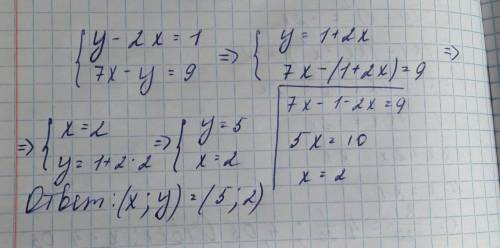 { y - 2x = 1
7x - y = 9 => { y = 1+2x
7x - (1+2x) = 9 =>
7x - 1 - 2x = 9
5x = 10
x = 2
=> { x = 2
y = 1+2·2 => { y = 5
x = 2
Ответ: (x; y) = (5; 2)